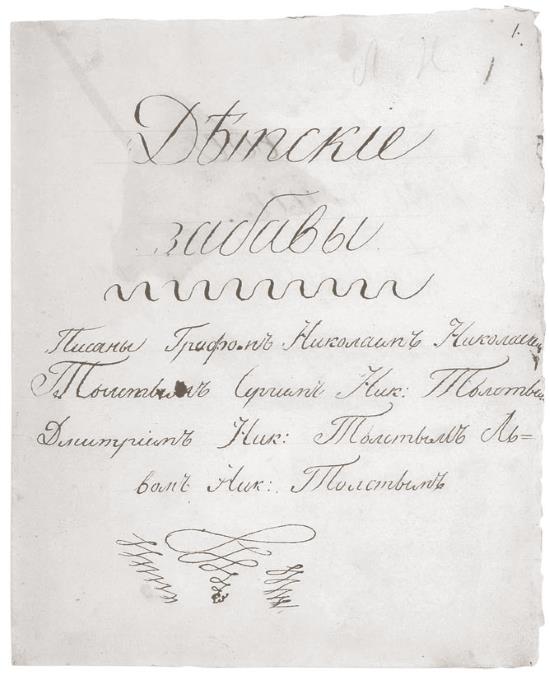 1.
Дѣтскіе
забавы
Писаны Графомъ Николаимъ Николаеви
Толстымъ Сергиимъ Ник: Толстым
Дмитріимъ Ник: Толстымъ Ль=
вомъ Ник: Толстымъ